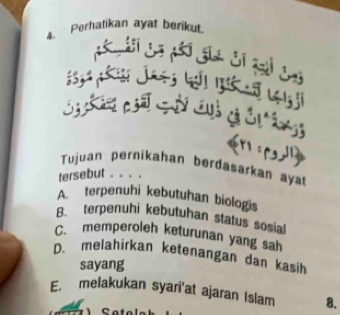 4. Perhatikan ayat berikut.
وَمِنْ آيَاتِهِ أَنْ خَلَقَ لَكُمْ مِنْ أَنْفُسِكُمْ
أَزْوَاجًا لِتَسْكُنُوا إِلَيْهَا وَجَعَلَ بَيْنَكُمْ مَوَدَّةً
وَرَحْمَةً إِنَّ فِي ذَلِكَ لَآيَاتٍ لِقَوْمٍ يَتَفَكَّرُونَ
﴿الروم: ٢١﴾
Tujuan pernikahan berdasarkan ayat
tersebut . . . .
A. terpenuhi kebutuhan biologis
B. terpenuhi kebutuhan status sosial
C. memperoleh keturunan yang sah
D. melahirkan ketenangan dan kasih
sayang
E. melakukan syari'at ajaran Islam
8.